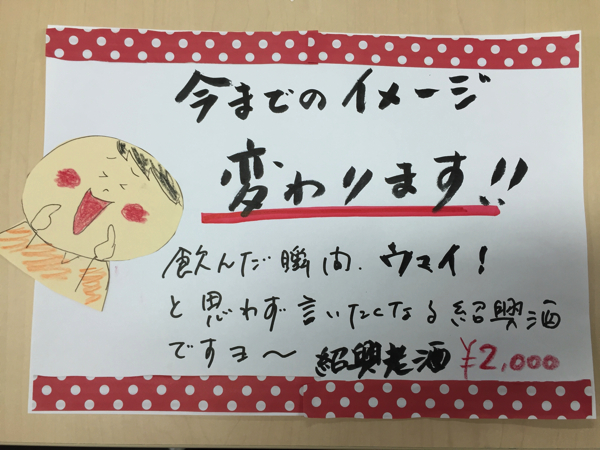 今までのイメージ
変わります!!
飲んだ瞬間、ウマイ!
と思わず言いたくなる紹興酒
ですヨ〜 紹興老酒 ¥2,000